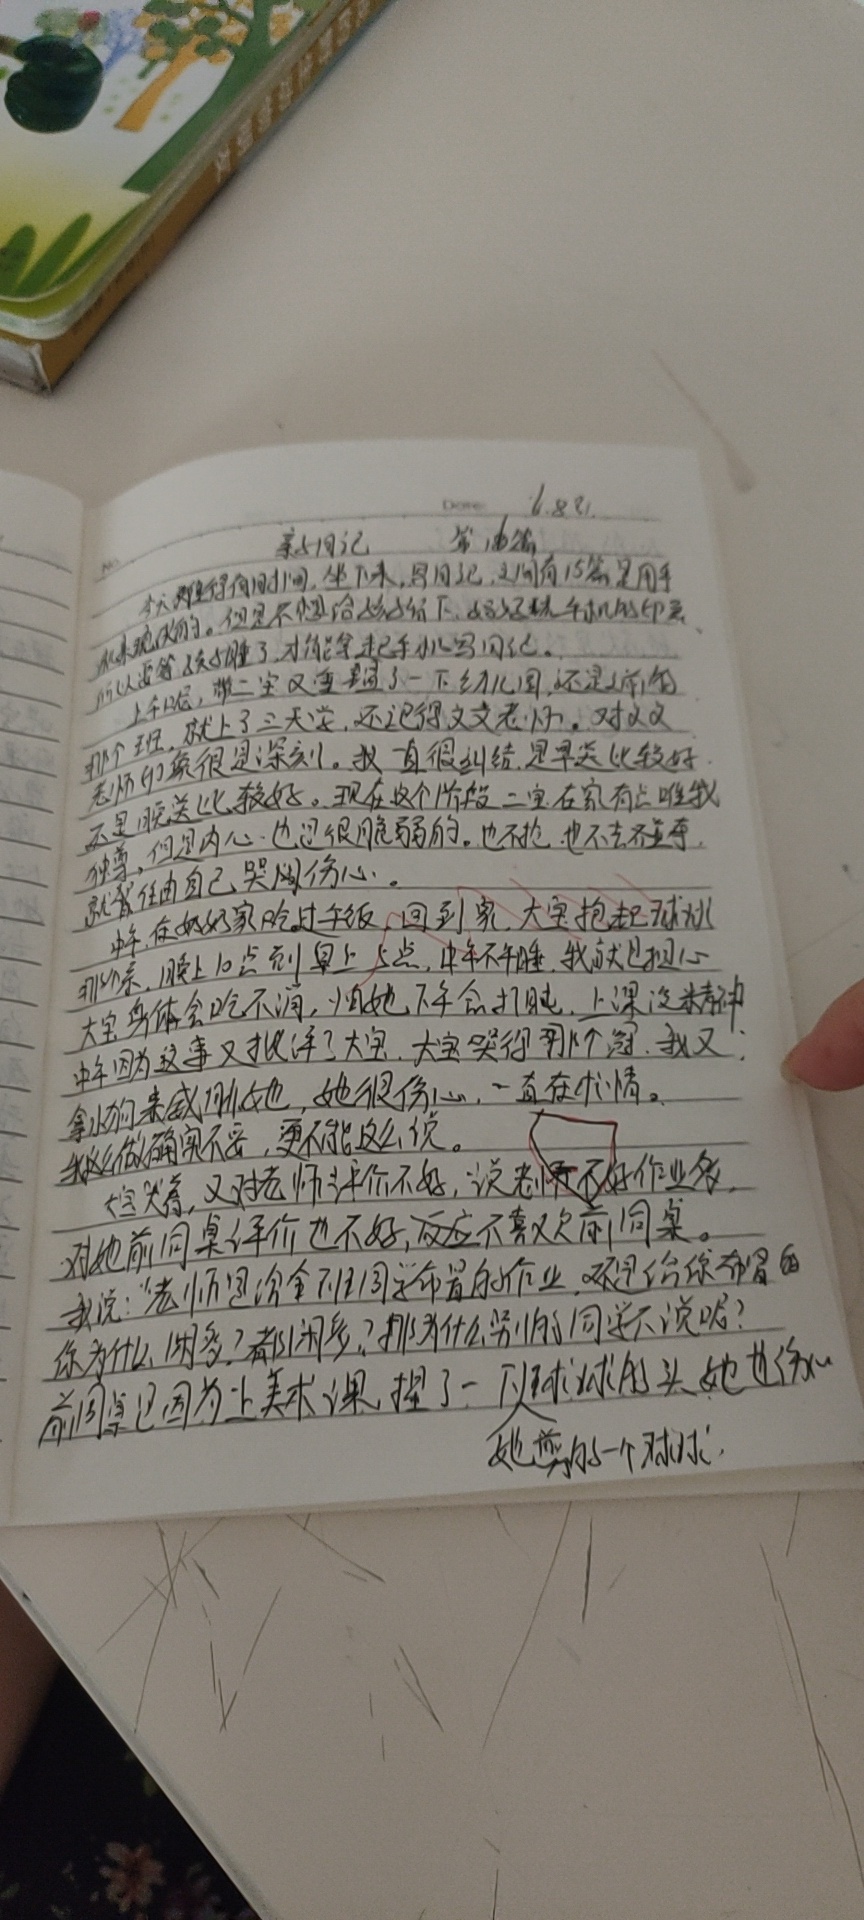 Date 6.8日.
No.
亲子日记 第16篇
今天难得有时间,坐下来,写日记,之间有15篇是用手
机来完成的。但是不想给孩子留下,妈妈玩手机的印象,
所以要等孩子睡了,才能拿起手机写日记。
上午呢,带二宝又重温了一下幼儿园,还是之前的
那个班,就上了三天学,还记得文文老师。对文文
老师印象很是深刻。我一直很纠结,是早送比较好
还是晚送比较好。现在这个阶段二宝在家有点唯我
独尊,但是内心也是很脆弱的。也不抢,也不去争夺,
就管住自己哭闹伤心。
中午,在奶奶家吃过午饭,回到家,大宝抱起球球
那份亲,晚上10点到早上5点,中午不午睡,我就是担心
大宝身体会吃不消,怕她下午会打盹,上课没精神
中午因为这事又批评了大宝,大宝哭得那个冤,我又
拿小狗来威胁她,她很伤心,一直在求情。
我这么做确实不妥,更不能这么说。
大宝哭着,又对老师评价不好,说老师不好作业多,
对她前同桌评价也不好,反应不喜欢前同桌。
我说:"老师是给全班同学布置的作业,不是给你布置的
你为什么嫌多?都嫌多?那为什么别的同学不说呢?
前同桌是因为上美术课,捏了一下球球的头,她也伤心
她剪的一个球球.